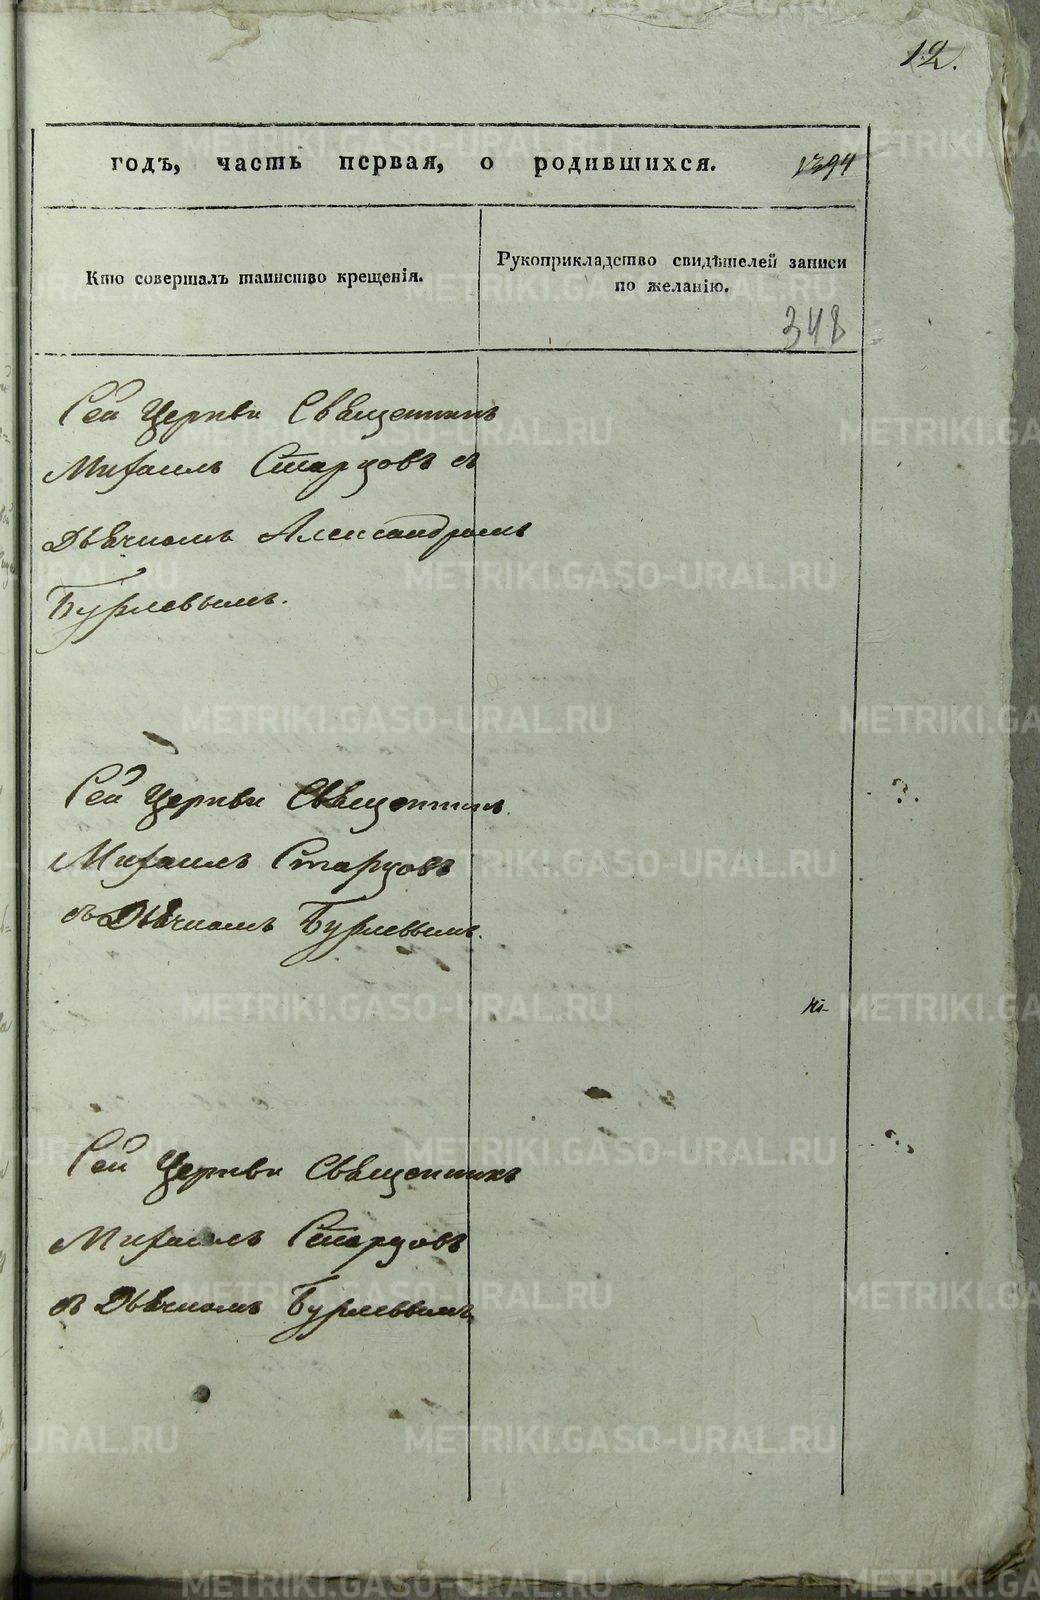 12.
годъ, часть первая, о родившихся. 1394
Кто совершалъ таинство крещенія.
Рукоприкладство свидѣтелей записи
по желанію.
348
Сей Церкви Священникъ
Михаилъ Старцовъ съ
Дьячкомъ Александромъ
Бурлевымъ.
Сей Церкви Священникъ
Михаилъ Старцовъ
съ Дьячкомъ Бурлевымъ.
Сей Церкви Священникъ
Михаилъ Старцовъ
съ Дьячкомъ Бурлевымъ
METRIKI.GASO-URAL.RU